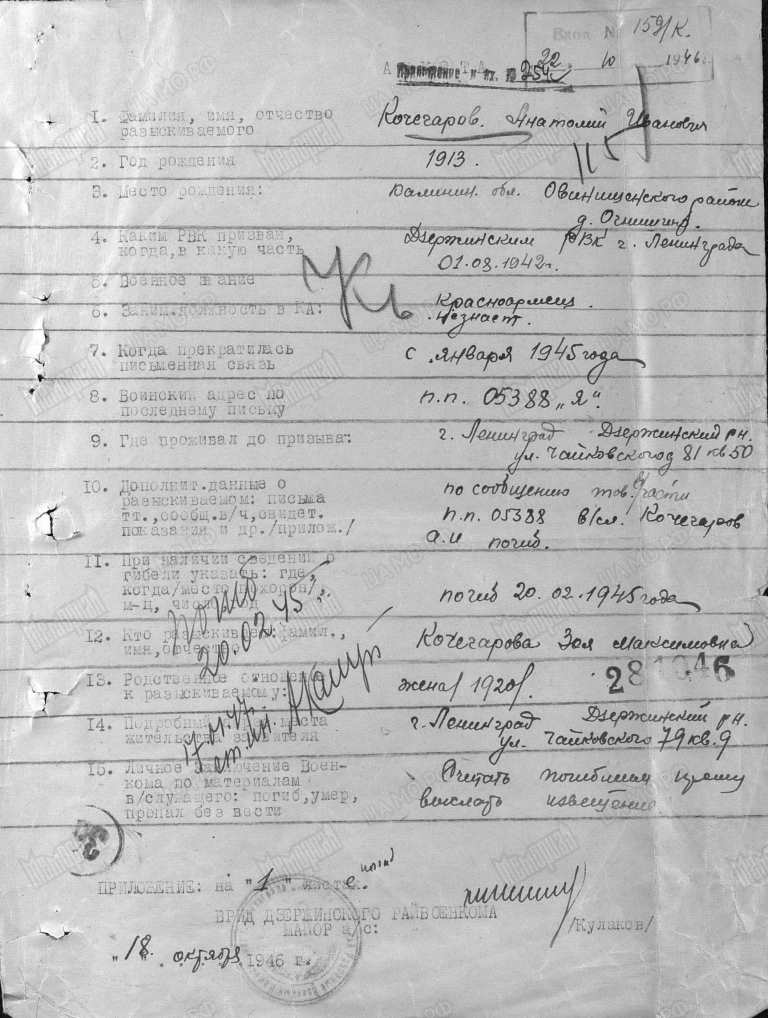 Вход № 159/К.
22 10 1946 г.
АНКЕТА
Приложение к вх. № 254
115
1. Фамилия, имя, отчество Кочегаров Анатолий Иванович
разыскиваемого
2. Год рождения 1913.
3. Место рождения: Калинин. обл. Овинищенского район
д.
4. Каким РВК призван, Дзержинским РВК г. Ленинграда
когда, в какую часть 01.08.1942г.
5. Военное звание
6. Заним.должность в КА: Красноармеец.
неизвест.
7. Когда прекратилась с января 1945 года
письменная связь
8. Воинский адрес по п.п. 05388 „Я".
последнему письму
9. Где проживал до призыва: г. Ленинград Дзержинский рн.
ул. Чайковского д 81 кв 50
10. Дополнит.данные о по сообщению части
разыскиваемом: письма п.п. 05388 в/сл. Кочегаров
тт.,сообщ.в/ч,свидет. А.И погиб.
показания и др./прилож./
11. При наличии сведений о
гибели указать: где,
когда/место похорон/ погиб 20.02.1945 года
м-ц, число, год
12. Кто разыскивает: фамил., Кочегарова Зоя Максимовна
имя,отчество
281046
13. Родственное отношение жена/ 1920/.
к разыскиваемому:
14. Подробный адрес места г. Ленинград Дзержинский рн.
жительства заявителя ул. Чайковского 79 кв. 9
15. Личное заключение Воен- Считать погибшим прошу
кома по материалам выслать извещение
в/служащего: погиб,умер,
пропал без вести
погиб
20.02.45 г.
ст. лн.
ПРИЛОЖЕНИЕ: на "1" листе.
ВРИД ДЗЕРЖИНСКОГО РАЙВОЕНКОМА
МАЙОР а/с: /Кулаков/
"18" октября 1946 г.